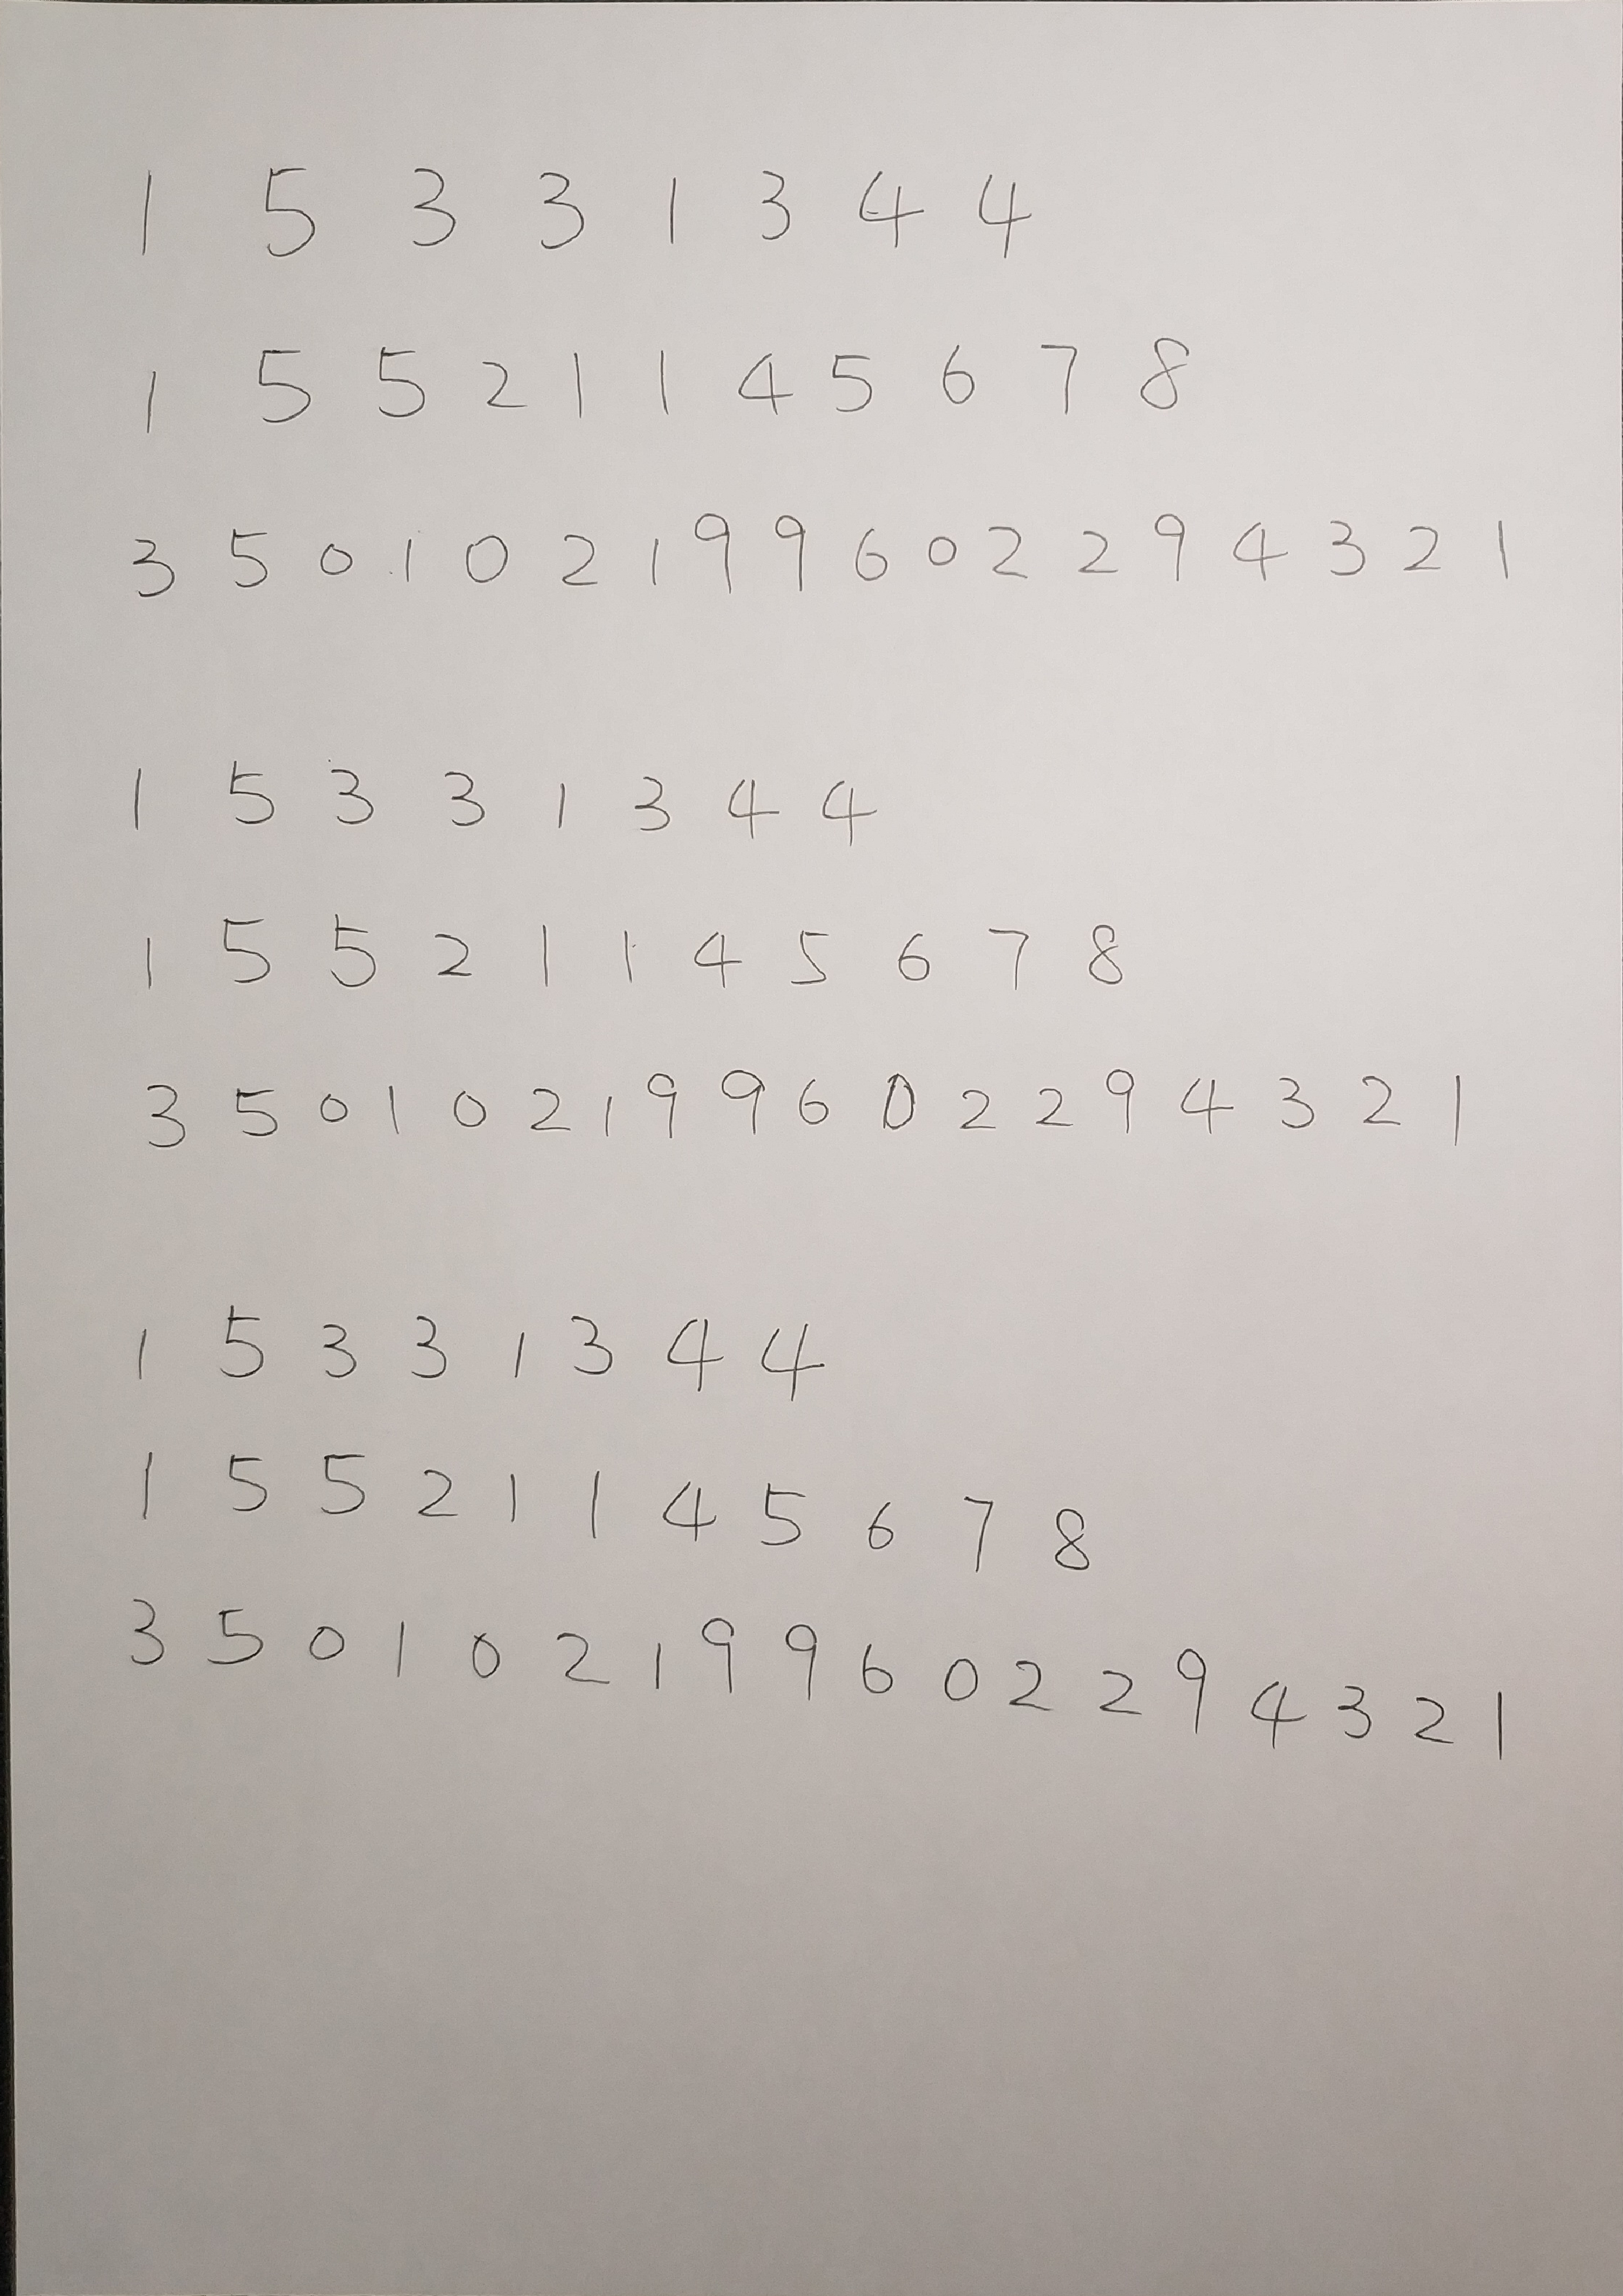 1 5 3 3 1 3 4 4
1 5 5 2 1 1 4 5 6 7 8
3 5 0 1 0 2 1 9 9 6 0 2 2 9 4 3 2 1
1 5 3 3 1 3 4 4
1 5 5 2 1 1 4 5 6 7 8
3 5 0 1 0 2 1 9 9 6 0 2 2 9 4 3 2 1
1 5 3 3 1 3 4 4
1 5 5 2 1 1 4 5 6 7 8
3 5 0 1 0 2 1 9 9 6 0 2 2 9 4 3 2 1